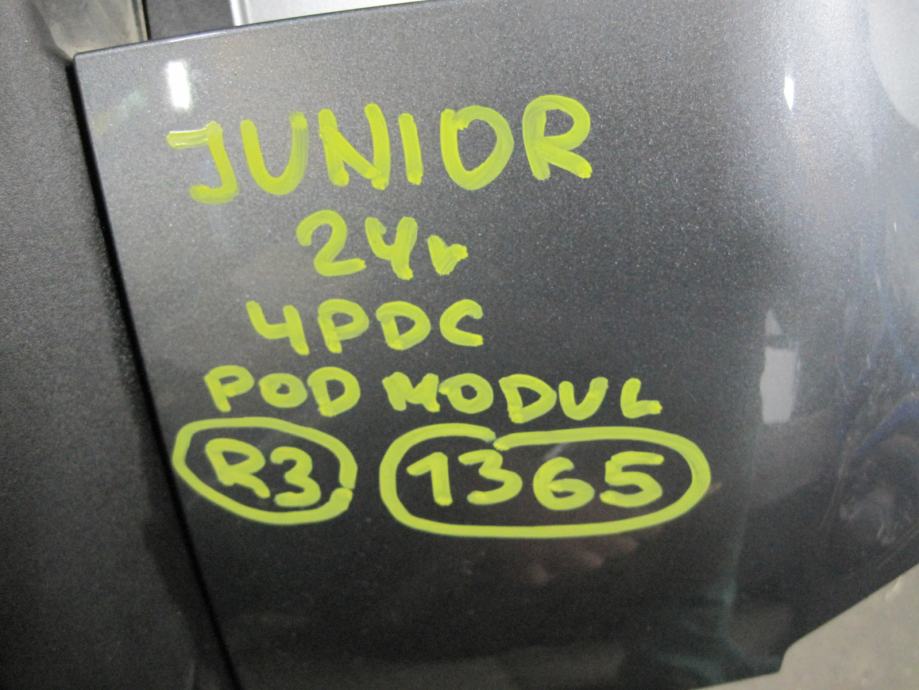 JUNIOR
24r
4PDC
POD MODUL
R3 1365